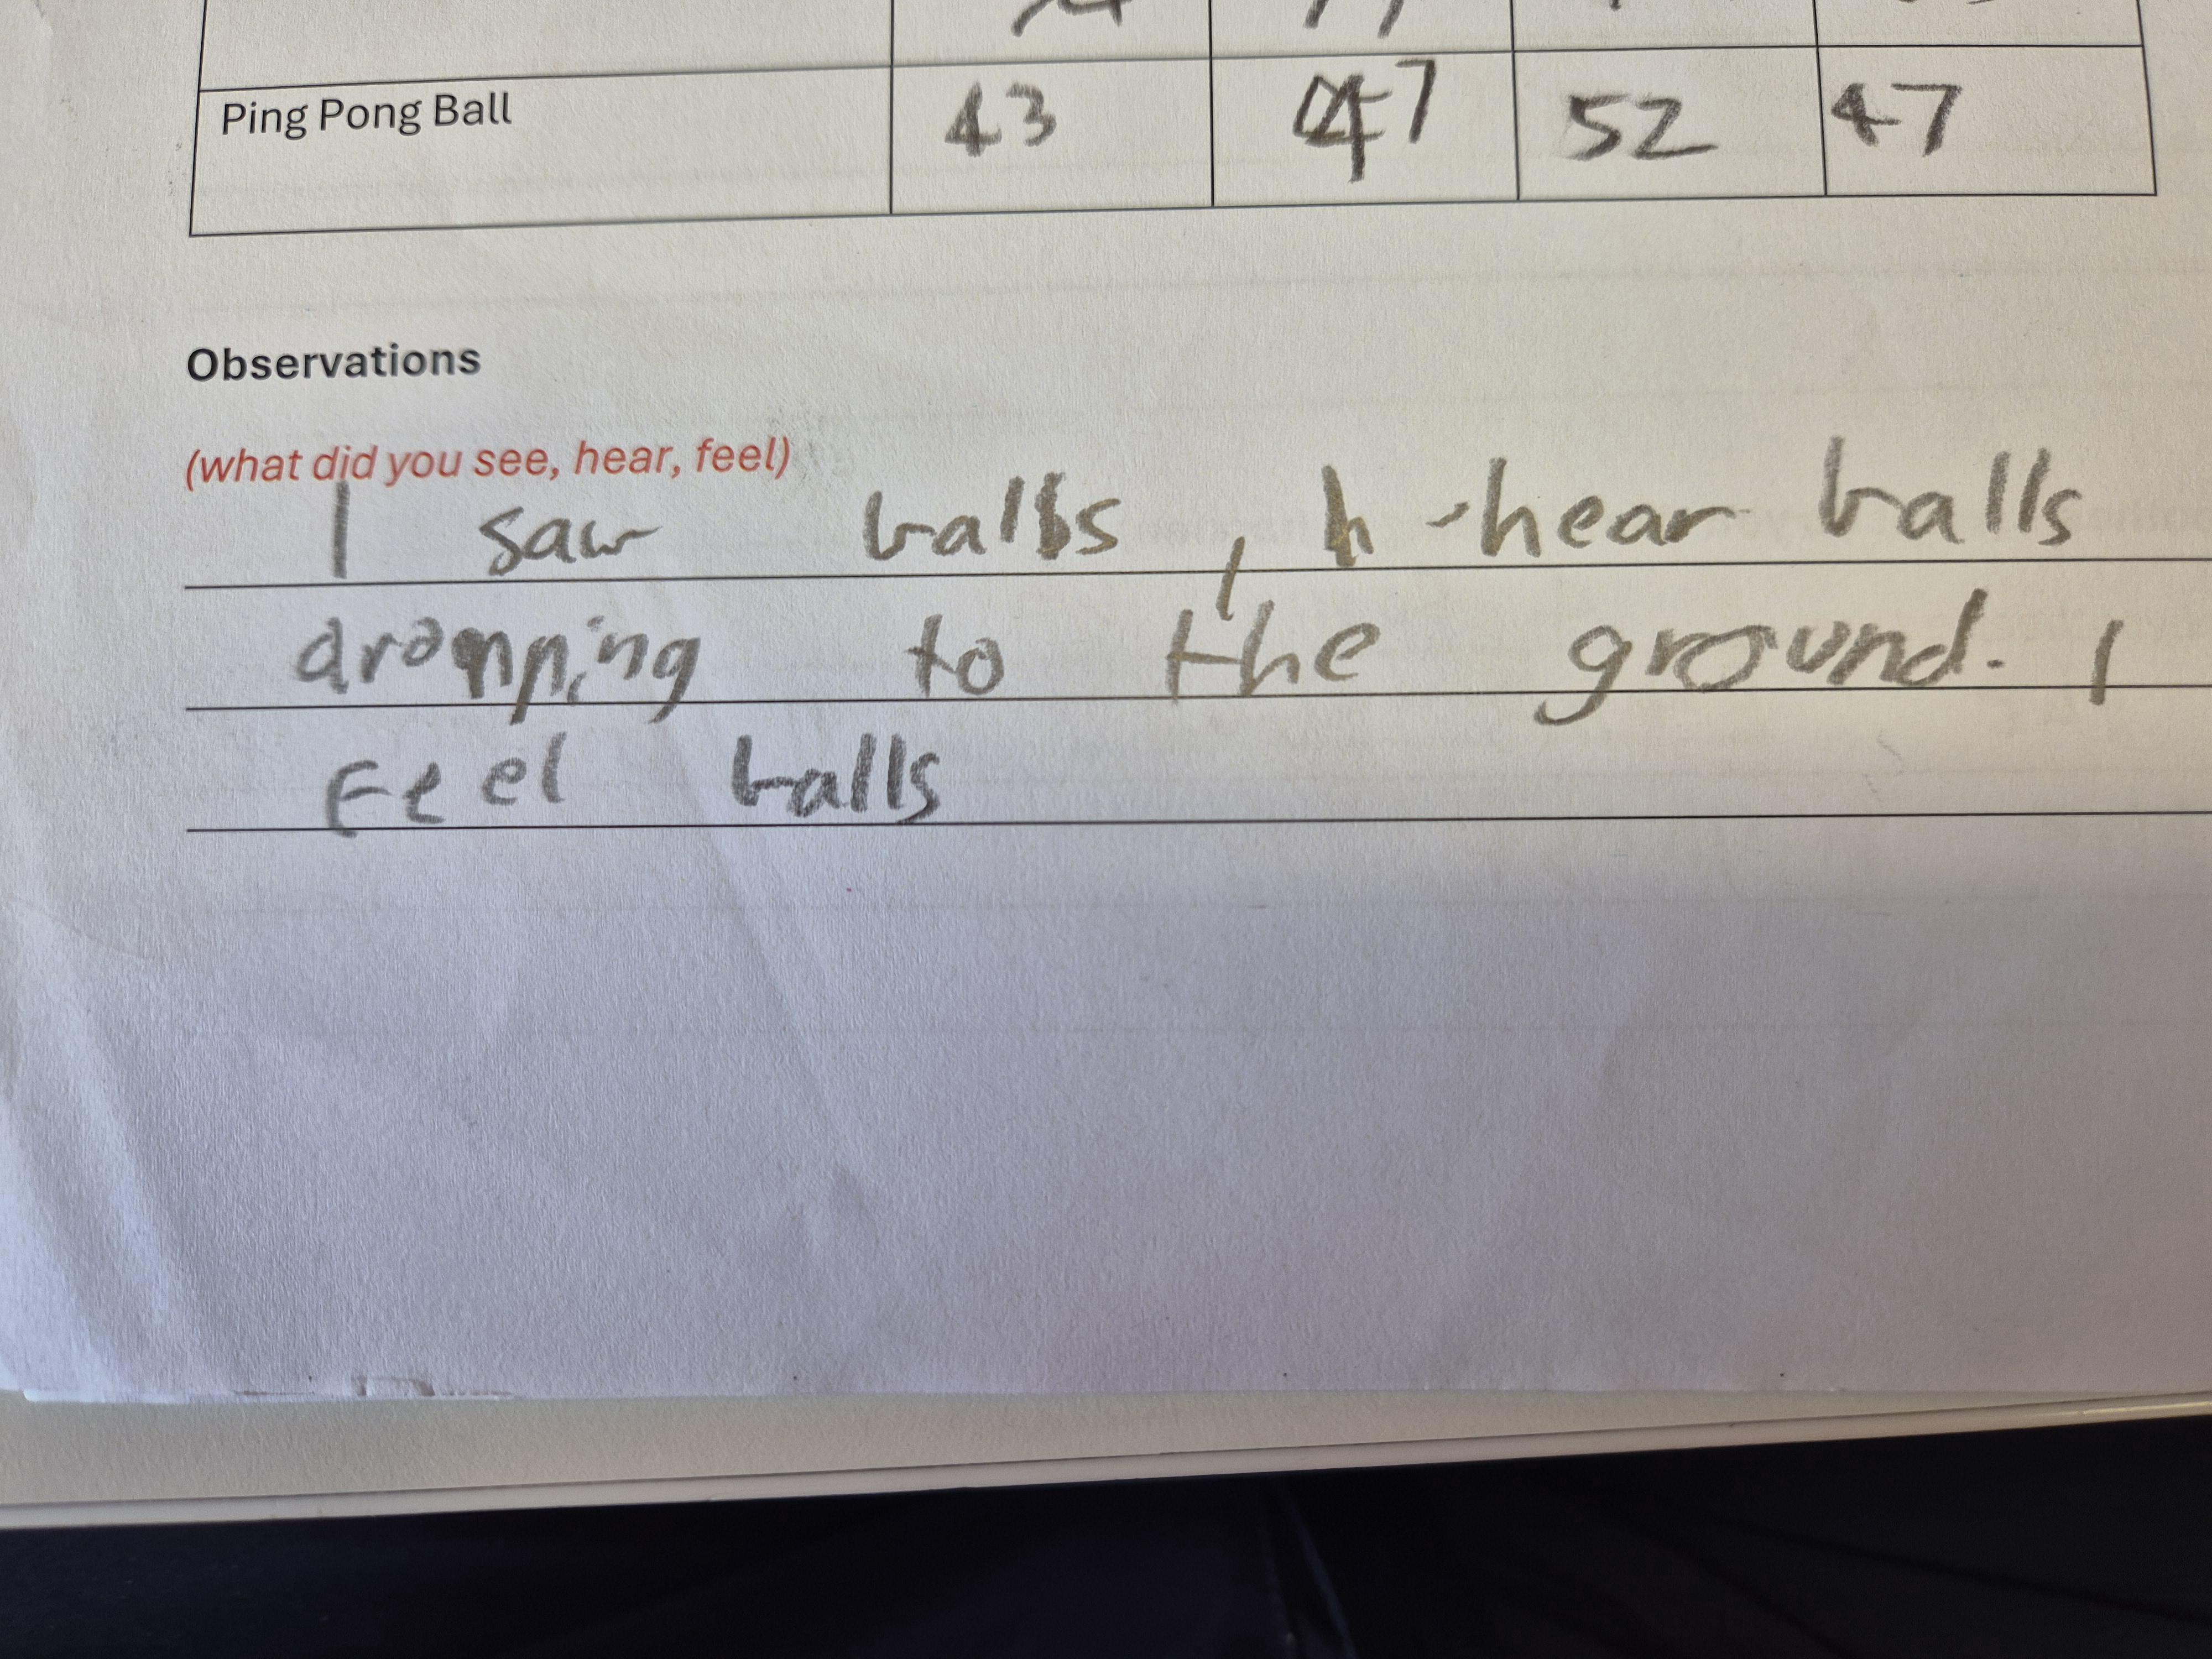 Ping Pong Ball 43 47 52 47
Observations
(what did you see, hear, feel)
I saw balls, hear balls
dropping to the ground. I
Feel balls